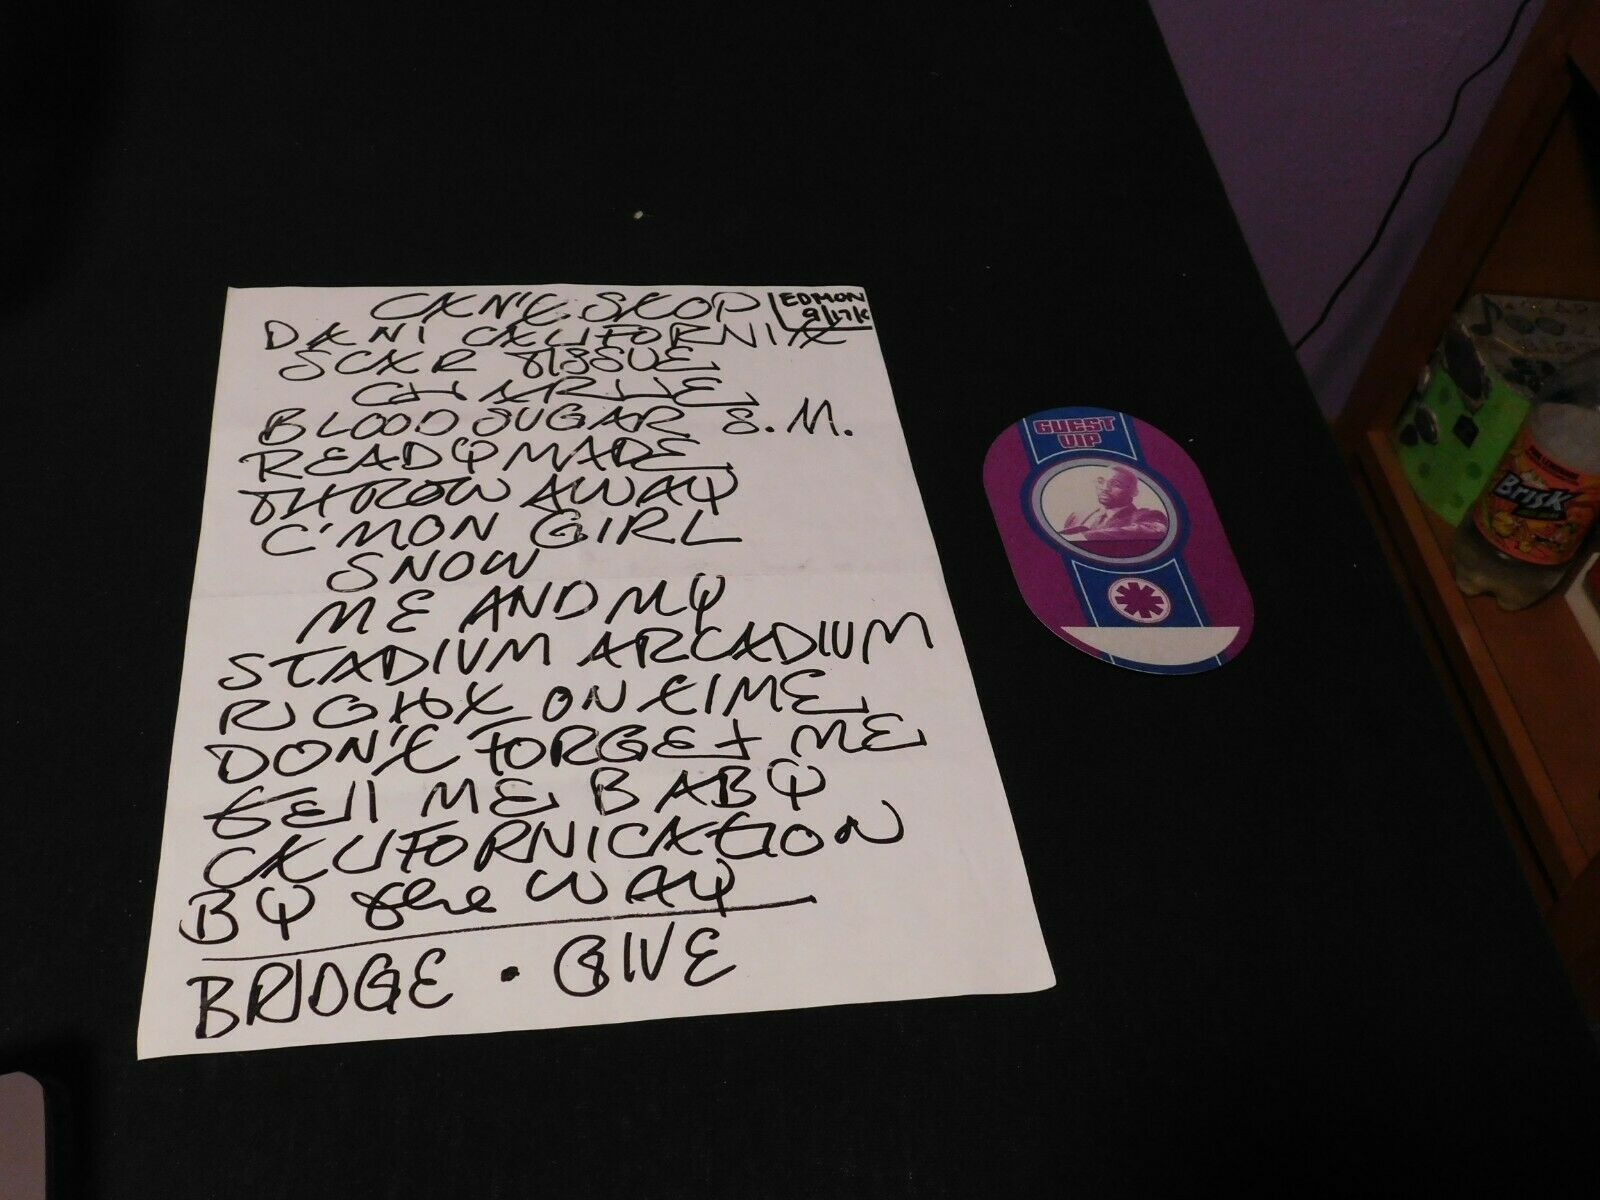 CAN'T STOP
EDMON
9/17/
DANI CALIFORNIA
SCAR TISSUE
CHARLIE
BLOOD SUGAR S.M.
READYMADE
THROW AWAY
C'MON GIRL
SNOW
ME AND MY
STADIUM ARCADIUM
RIGHT ON TIME
DON'T FORGET ME
tell ME BABY
CALIFORNICATION
BY the WAY
BRIDGE • GIVE
GUEST
VIP
Brisk